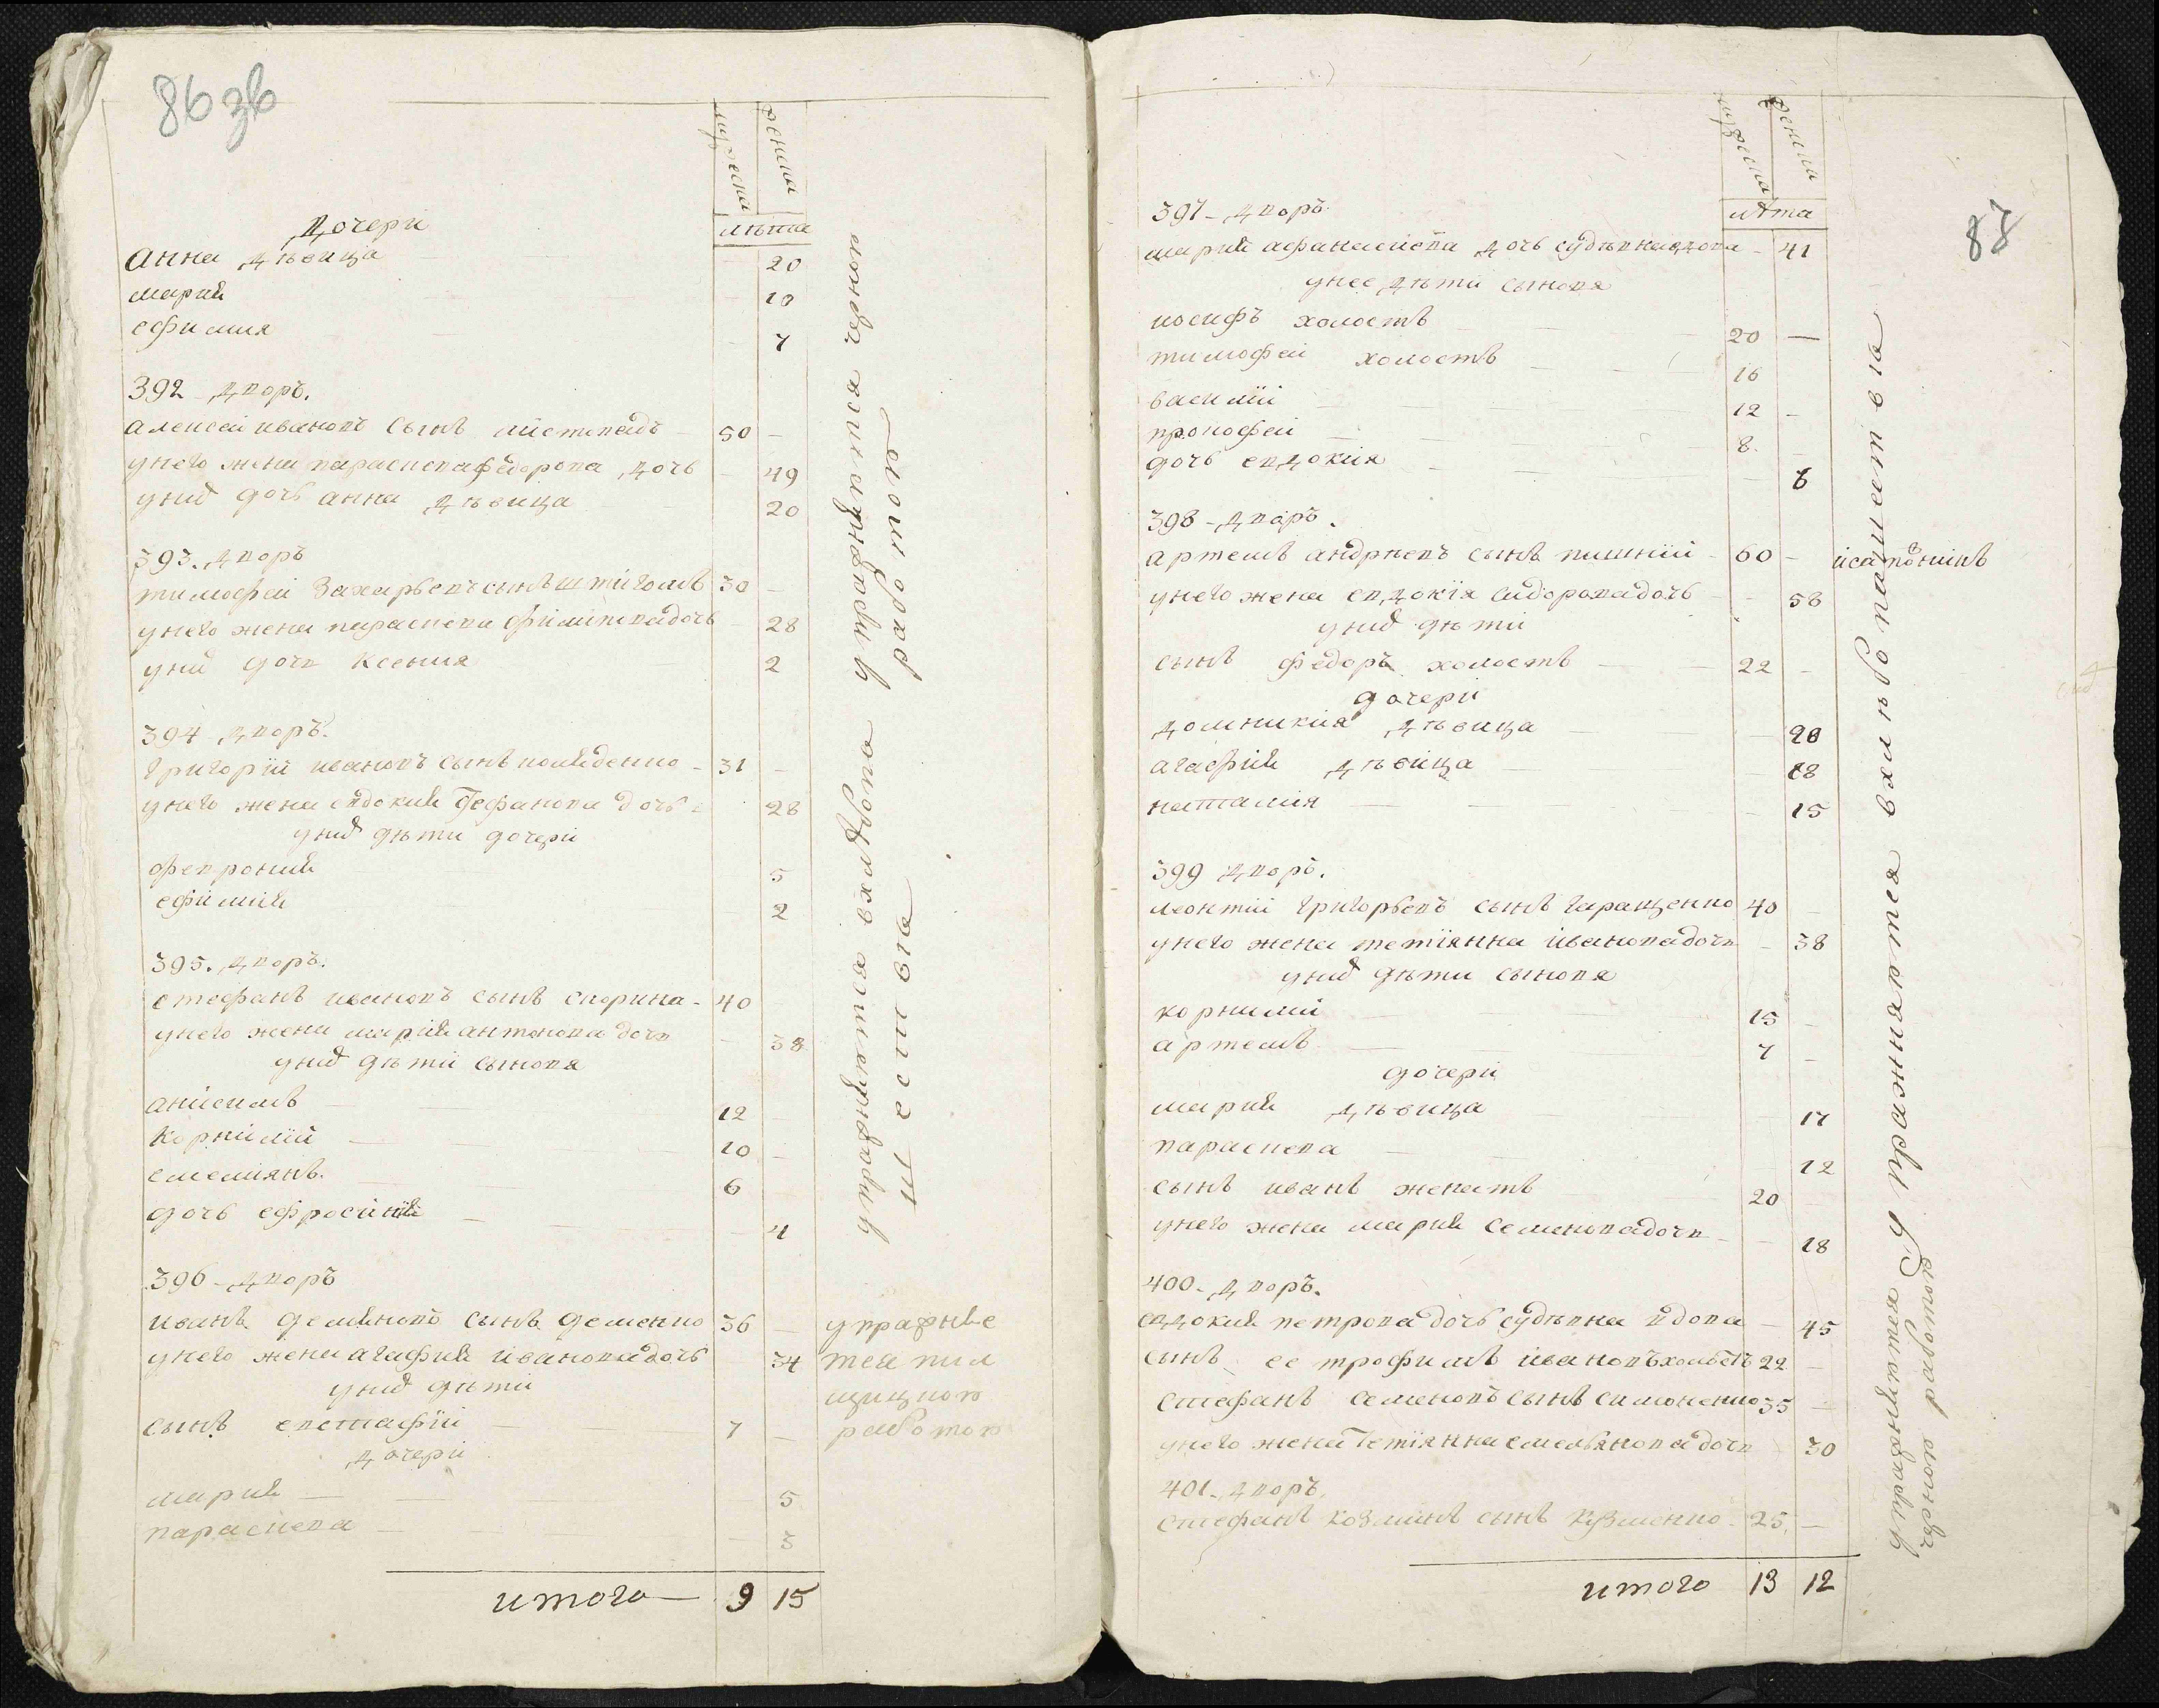 86 зв
мужеска
женска
лѣта
Дочери
Анна дѣвица 20
мария 10
ефимия 7
392 двор.
алексей иванов сынъ листопадъ 50
у него жена параскева федорова дочь 49
у них дочь анна дѣвица 20
393. двор
тимофей захарьев сынъ 30
у него жена параскева филипова дочь 28
у них дочь ксения 2
394 двор.
григорий иванов сынъ 31
у него жена евдокия стефанова дочь 28
у них дѣти дочери
феврония 5
ефимия 2
395. двор.
стефанъ иванов сынъ скорина 40
у него жена мария антонова дочь 38
у них дѣти сыновя
анисимъ 12
корнилий 10
емелиянъ 6
дочь ефросиния 4
396 двор
иванъ демянов сынъ деменко 36
у него жена агафия иванова дочь 34
у них дѣти
сынъ евстафий 7
дочери
мария 5
параскева 3
итого 9 15
упражняются чорною
работою
упражняется в хлѣбопа
шества
упражняе
тса пил
щицкою
работою
87
мужеска
женска
лѣта
397 двор.
мария афанасиева дочь судѣвна вдова 41
у нее дѣти сыновя
иосифъ холостъ 20
тимофей холостъ 16
василий 12
прокофей 8
дочь евдокия 6
398 двор.
артемъ андрѣев сынъ пишний 60
у него жена евдокия сидорова дочь 58
у них дѣти
сынъ федоръ холостъ 22
дочери
домникия дѣвица 20
агафия дѣвица 18
наталия 15
399 двор.
леонтий григорьев сынъ гаращенко 40
у него жена тетиянна иванова дочь 38
у них дѣти сыновя
корнилий 15
артемъ 7
дочери
мария дѣвица 17
параскева 12
сынъ иванъ женатъ 20
у него жена мария семенова дочь 18
400 двор.
евдокия петрова дочь судѣвна вдова 45
сынъ ее трофимъ иванов холостъ 22
стефанъ семенов сынъ симоненко 35
у него жена тетиянна емельянова дочь 30
401 двор.
стефанъ козминъ сынъ кузменко 25
итого 13 12
упражняются в хлѣбопашества
упражняются
чорною работою